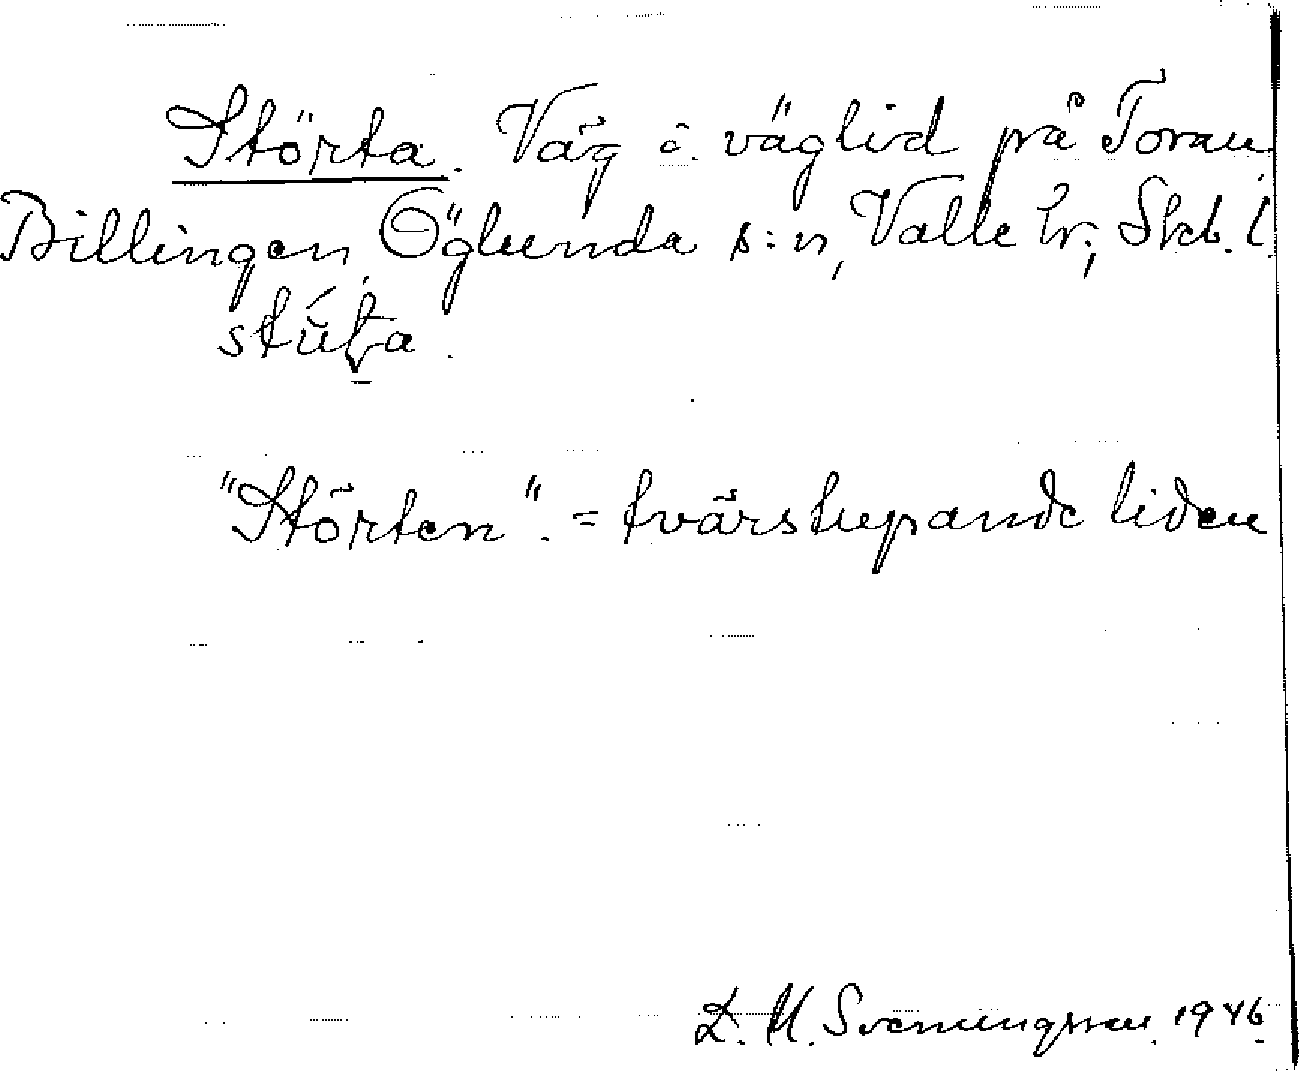 Störta. Väg o. väglid på Toran
Billingen, Öglunda s:n, Valle hr; Skb. l.
"Störten". = tvärstupande liden
D. M. Svenungsson. 1946.